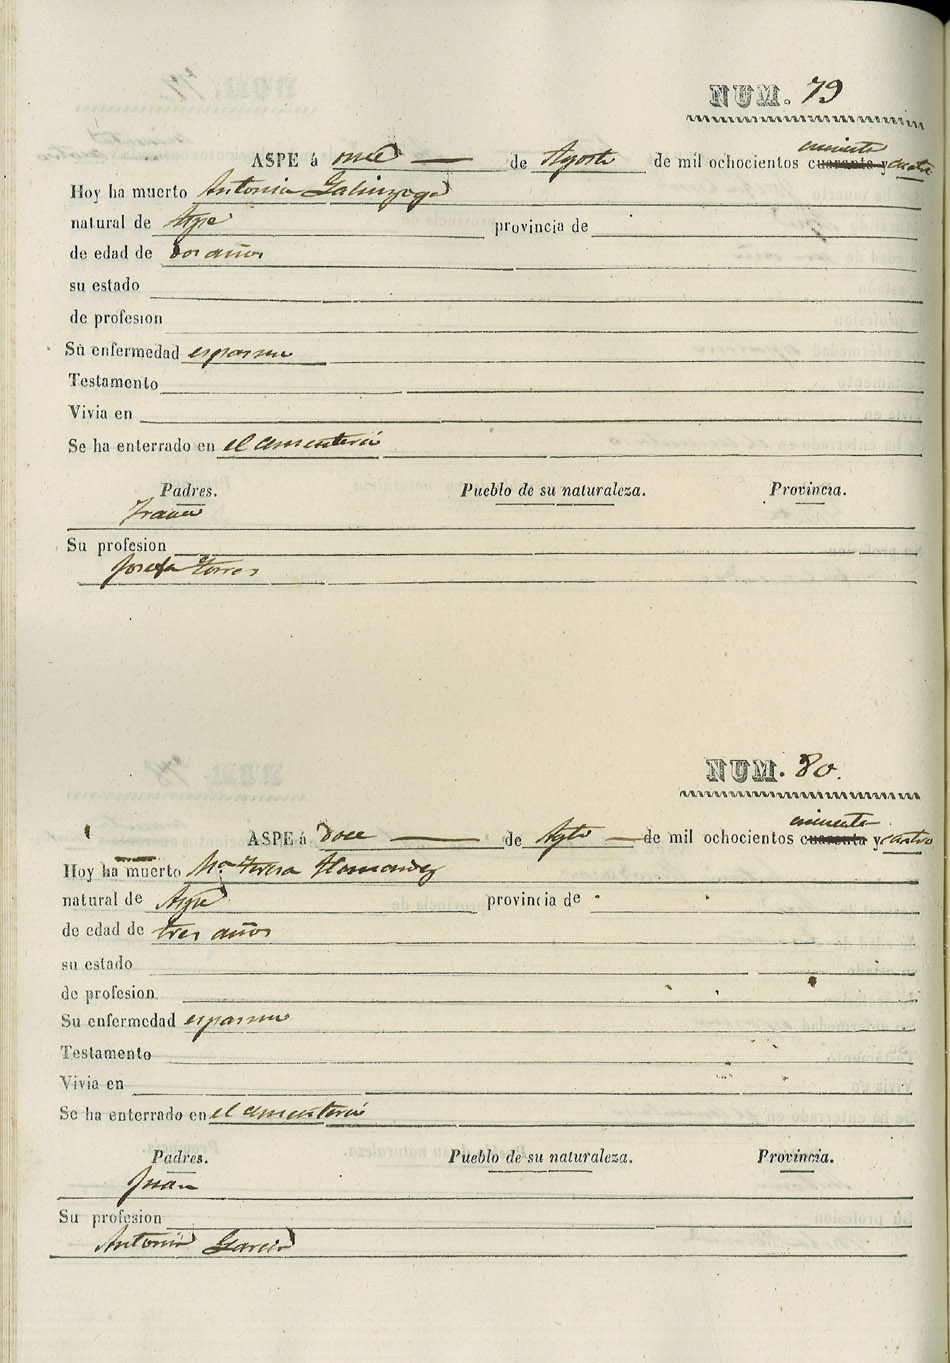 NUM. 79
cincuenta
ASPE á once de Agosto de mil ochocientos cuarenta y cuatro
Hoy ha muerto Antonia Galinzoga
natural de Aspe provincia de
de edad de dos años
su estado
de profesion
Su enfermedad espasmo
Testamento
Vivia en
Se ha enterrado en el cementerio
Padres. Pueblo de su naturaleza. Provincia.
Su profesion
Josefa Torres
NUM. 80.
cincuenta
ASPE á doce de Agto de mil ochocientos cuarenta y cuatro
Hoy ha muerto Mª Teresa Hernandez
natural de Aspe provincia de
de edad de tres años
su estado
de profesion
Su enfermedad espasmo
Testamento
Vivia en
Se ha enterrado en el cementerio
Padres. Pueblo de su naturaleza. Provincia.
Juan
Su profesion
Antonia Garcia